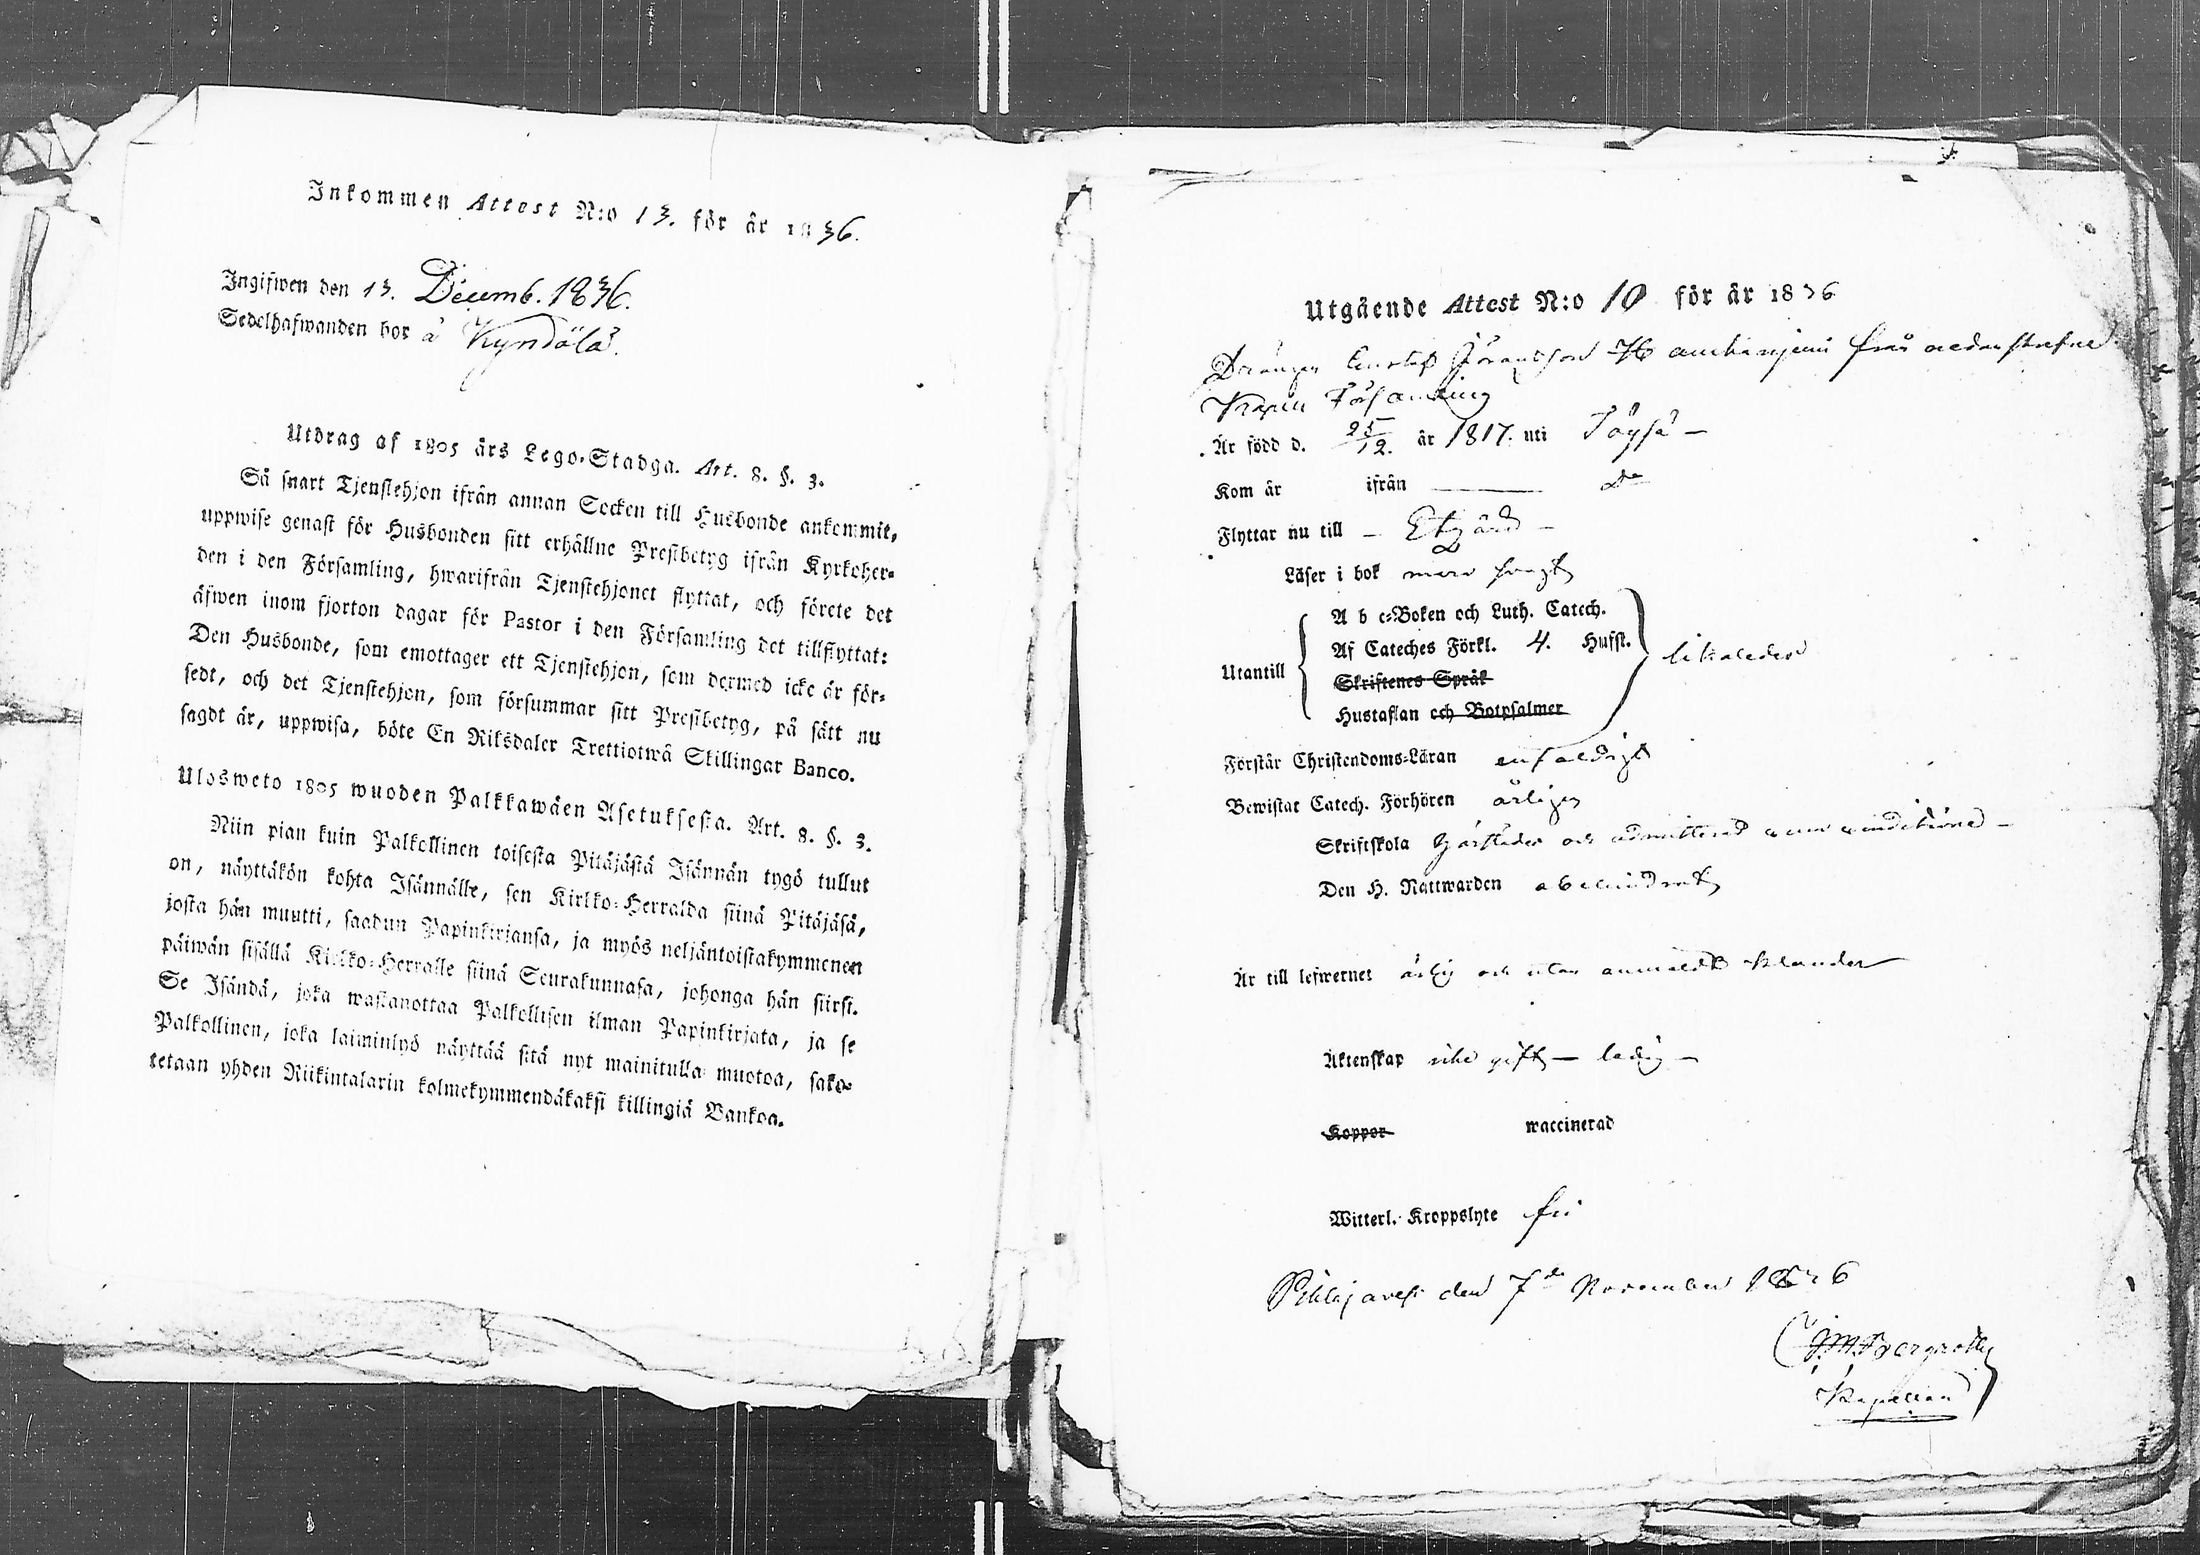 Inkommen Attest N:o 13. för år 1836.
Ingifwen den 13. Decemb. 1836.
Sedelhafwanden bor å Kyndölä.
Utdrag af 1805 års Lego-Stadga. Art. 8. §. 3.
Så snart Tjenstehjon ifrån annan Socken till Husbonde ankommit,
uppwise genast för Husbonden sitt erhållne Prestbetyg ifrån Kyrkoher-
den i den Församling, hwarifrån Tjenstehjonet flyttat, och förete det
äfwen inom fjorton dagar för Pastor i den Församling det tillflyttat:
Den Husbonde, som emottager ett Tjenstehjon, som dermed icke är för-
sedt, och det Tjenstehjon, som försummar sitt Prestbetyg, på sätt nu
sagdt är, uppwisa, böte En Riksdaler Trettiotwå Skillingar Banco.
Ulosweto 1805 wuoden Palkkawäen Asetuksesta. Art. 8. §. 3.
Niin pian kuin Palkollinen toisesta Pitäjästä Isännän tygö tullut
on, näyttäkön kohta Isännälle, sen Kirkko-Herralda siinä Pitäjäsä,
josta hän muutti, saadun Papinkirjansa, ja myös neljäntoistakymmenen
päiwän sisällä Kirkko-Herralle siinä Seurakunnasa, johonga hän siirsi.
Se Isändä, joka wastanottaa Palkollisen ilman Papinkirjata, ja se
Palkollinen, joka laiminlyö näyttää sitä nyt mainitulla muotoa, sako-
tetaan yhden Riikintalarin kolmekymmendäkaksi killingiä Bankoa.
Utgående Attest N:o 10 för år 1836
Drängen Gustaf Göransson från nedanskrefne
Kapell Församling
Är född d. 25/12. år 1817. uti Töysä —
Kom år ifrån — Do
Flyttar nu till — Etzäri —
Läser i bok swagt
Utantill
A b c-Boken och Luth. Catech.
Af Cateches Förkl. 4. Hufst.
Skriftenes Språk
Hustaflan och Botpsalmer
likaledes
Förstår Christendoms-Läran enfaldigt
Bewistat Catech. Förhören årligen
Skriftskola och admitterad
Den H. Nattwarden obehindrat
Är till lefwernet ärlig och utan anmäldt klander
Äktenskap icke gift — ledig —
Koppor waccinerad
Witterl. Kroppslyte fri
Pihlajavesi den 7de November 1836
Kapellan